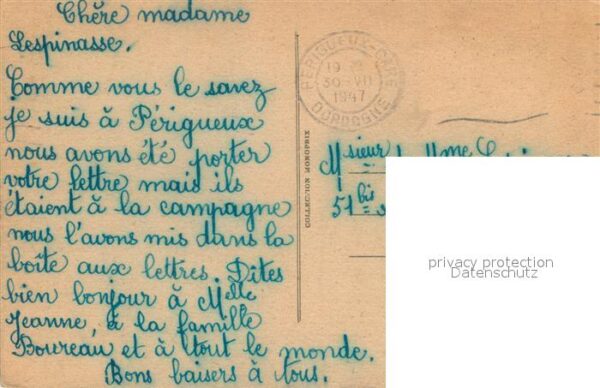 Chère madame
Lespinasse.
Comme vous le savez
je suis à Périgueux
nous avons été porter
votre lettre mais ils
étaient à la campagne
nous l'avons mis dans la
boîte aux lettres. Dites
bien bonjour à Melle
Jeanne, à la famille
Boureau et à tout le monde.
Bons baisers à tous.
PERIGUEUX-GARE
19
30-VII
1947
DORDOGNE
COLLECTION MONOPRIX
Msieur
Mme
51 bis
privacy protection
Datenschutz